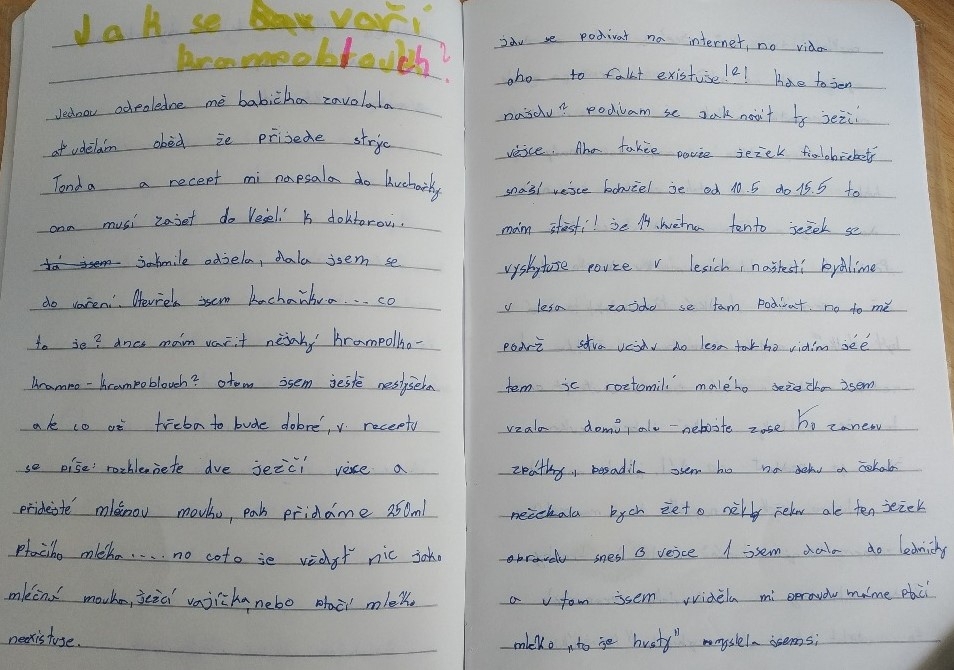 Jak se vaří
krampoblouch?
Jednou odpoledne mě babička zavolala
ať udělám oběd že přijede strýc
Tonda a recept mi napsala do kuchařky
ona musí zajet do Veselí k doktorovi.
tá jsem jakmile odjela, dala jsem se
do vaření. Otevřela jsem kuchařku.... co
to je? dnes mám vařit nějaký krampolko-
krampo-krampoblouch? otom jsem ještě neslyšela
ale co už třeba to bude dobré, v receptu
se píše: rozklepněte dvě ježčí vejce a
přidejte mléčnou mouku, pak přidáme 250ml
ptačího mléka.... no coto je vždyť nic jako
mléčná mouka, ježčí vajíčka, nebo ptačí mléko
neexistuje.
jdu se podívat na internet, no vida
ono to fakt existuje!?! kde tojen
najdu? podívam se jak najít ty ježčí
vejce. Aha takže pouze ježek fialobřichatý
snáší vejce bohužel je od 10.5 do 15.5 to
mám štěstí! je 14. května tento ježek se
vyskytuje pouze v lesích, naštestí bydlíme
v lesa zajdu se tam podívat. no to mě
podrž vejdu do lesa tak ho vidím jéé
ten je roztomilí malého ježečka jsem
vzala domů, ale - nebojte zase ho zanesu
zpátky, posadila jsem ho na deku a čekala
nečekala bych žeto někdy řeknu ale ten ježek
opravdu snesl 3 vejce 1 jsem dala do ledničky
a v tom jsem uviděla mi opravdu máme ptačí
mléko „to je hustý" myslela jsemsi